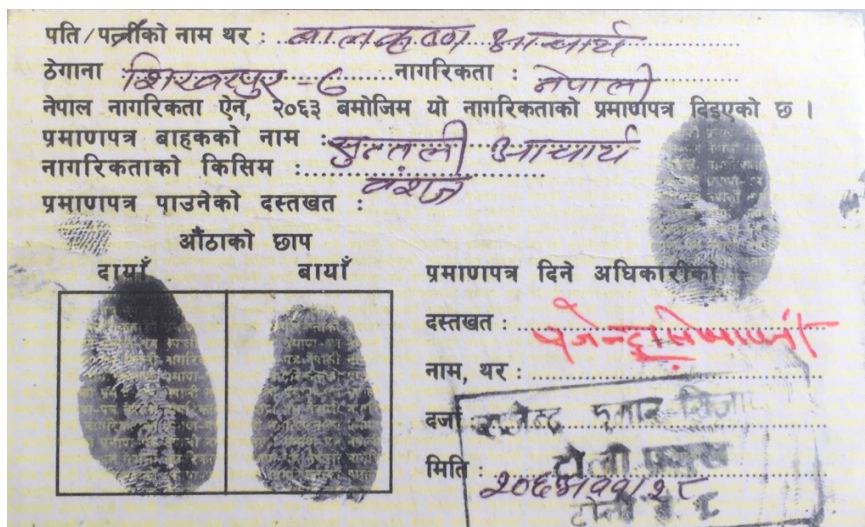 पति/पत्नीको नाम थर : बालकृष्ण आचार्य
ठेगाना शिखरपुर - ८ नागरिकता : नेपाली
नेपाल नागरिकता ऐन, २०६३ बमोजिम यो नागरिकताको प्रमाणपत्र दिइएको छ ।
प्रमाणपत्र बाहकको नाम : सुन्तली आचार्य
नागरिकताको किसिम : वंशज
प्रमाणपत्र पाउनेको दस्तखत :
औंठाको छाप
दायाँ बायाँ
प्रमाणपत्र दिने अधिकारीको
दस्तखत :
नाम, थर :
दर्जा कुमार
टोली प्रमुख
मिति :
टोली नं. ८